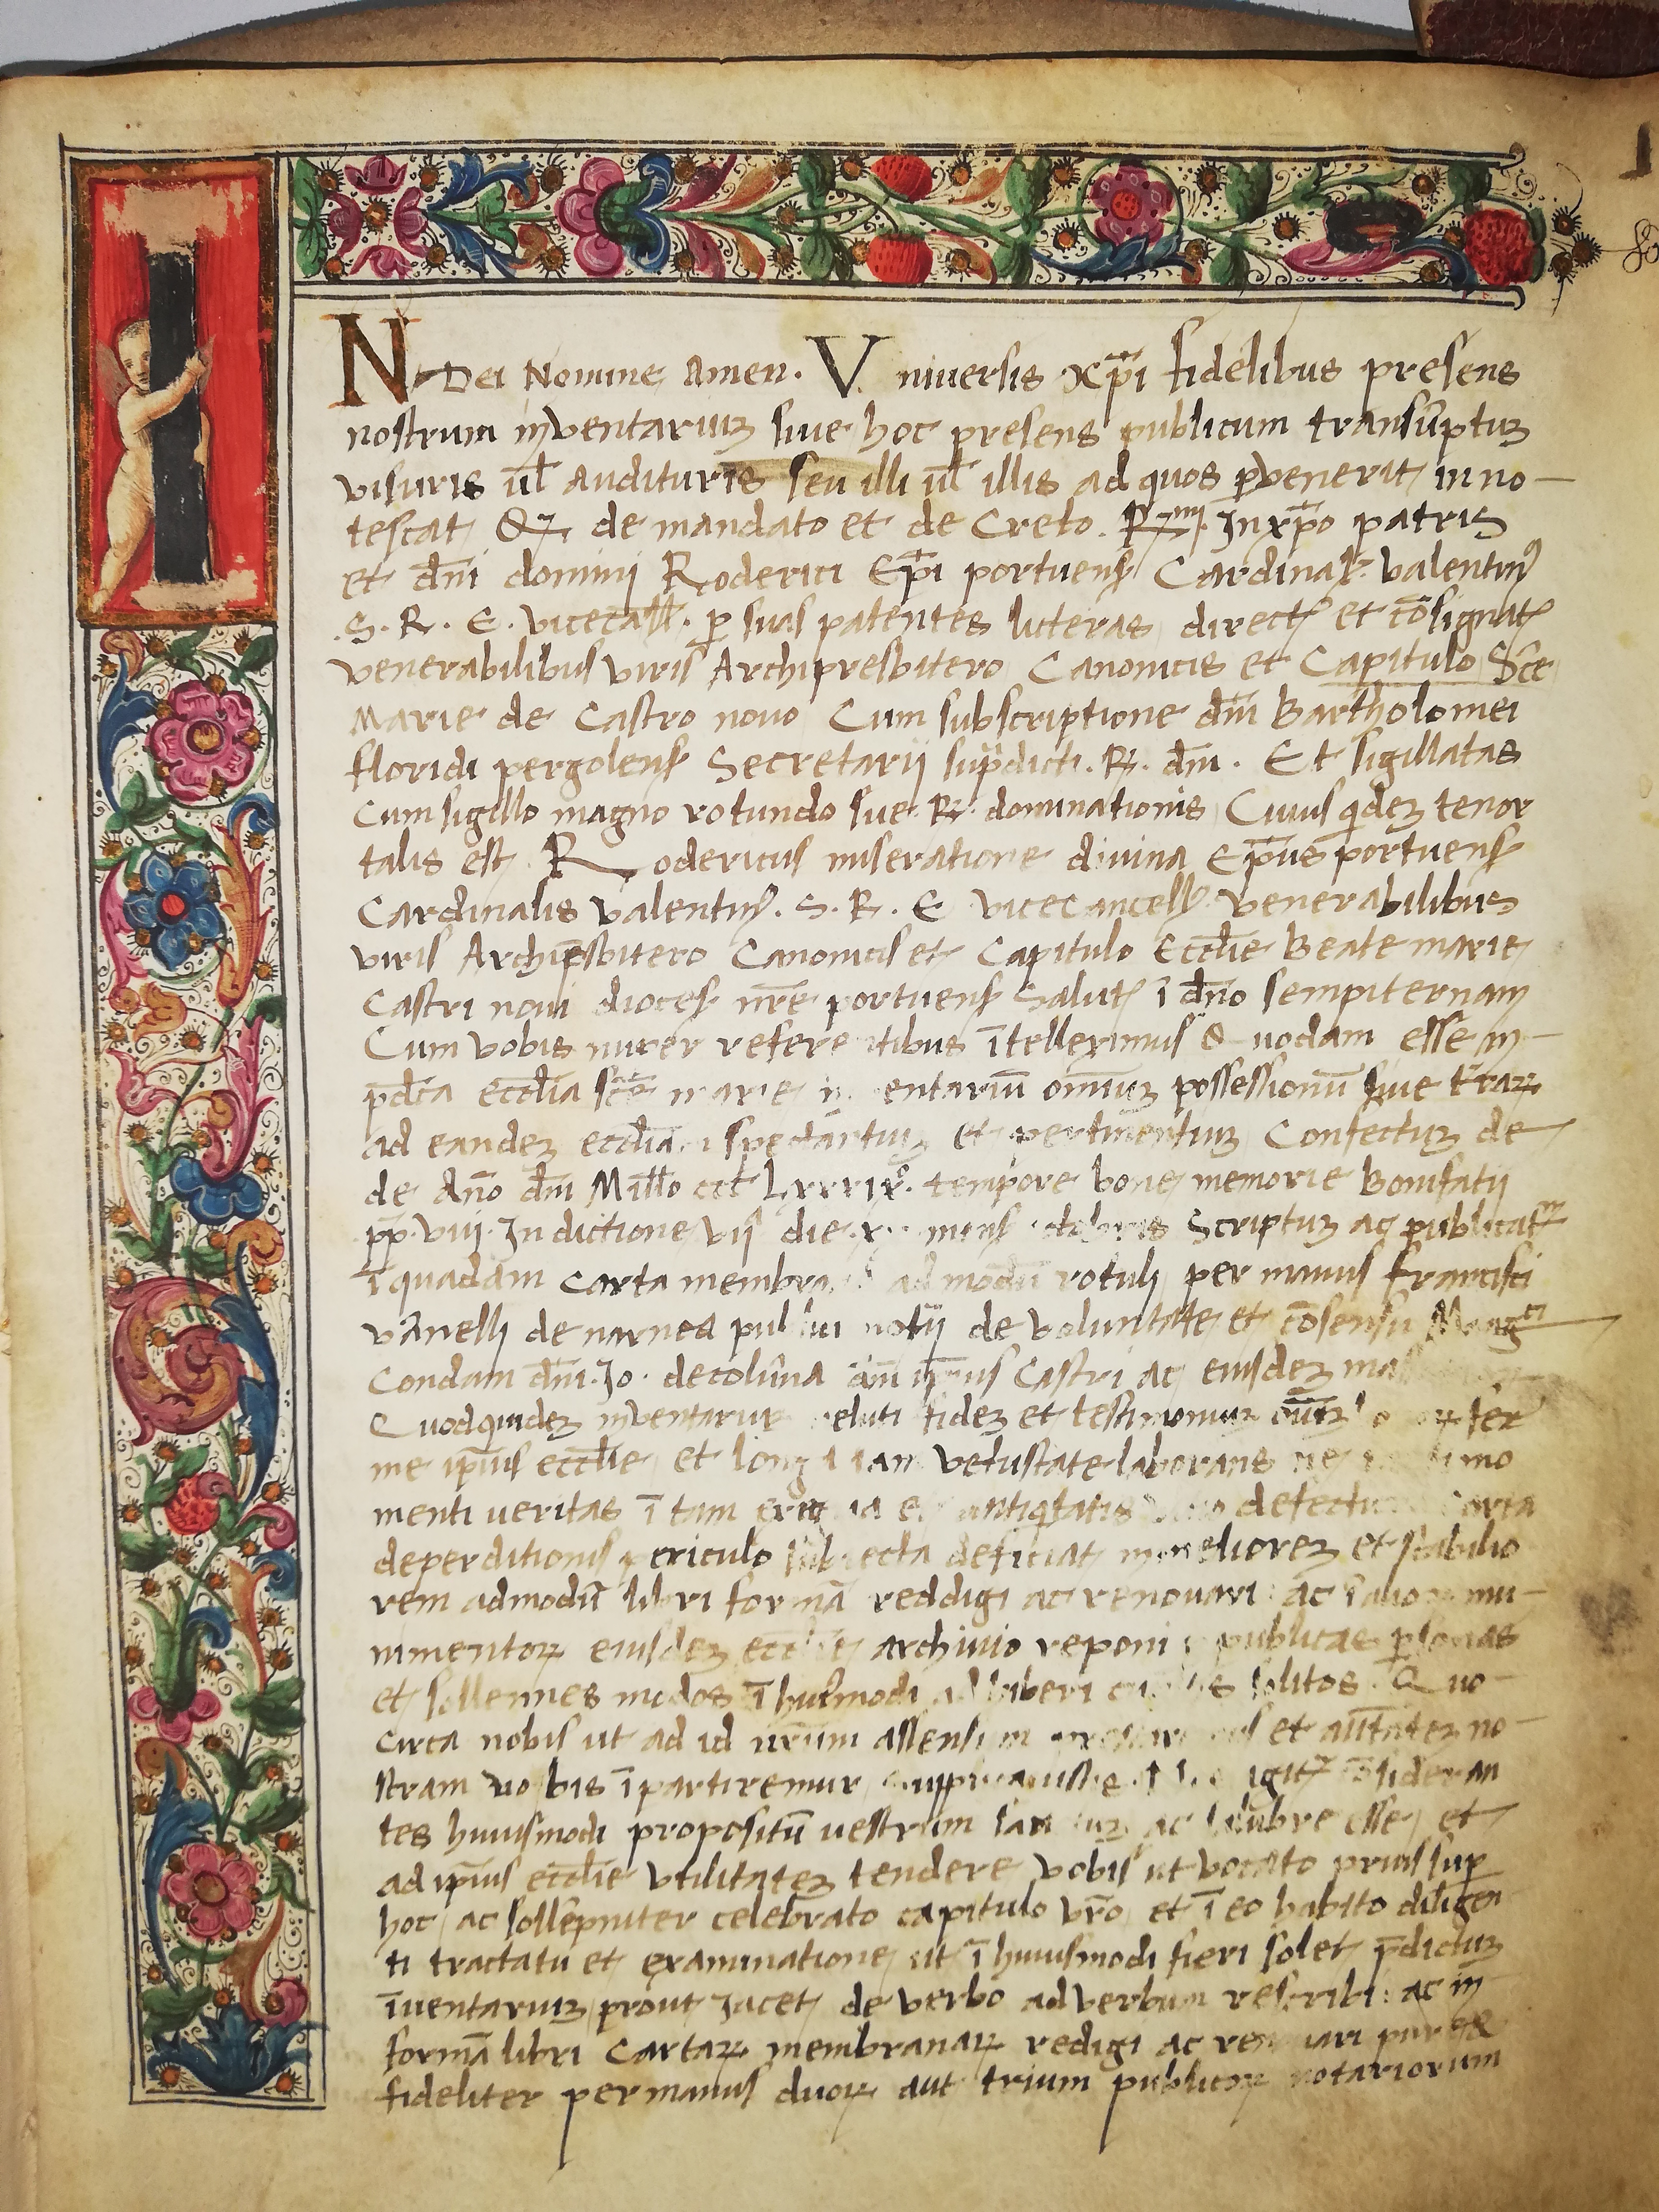 IN Dei Nomine Amen. Universis xp̄i fidelibus presens
nostrum inventariuꝫ siue hoc presens publicum transūptuꝫ
visuris ul̄ audituris seu illi ul̄ illis ad quos ꝑvenerit inno-
tescat Qꝫ de mandato et de Creto. Rmi. In xp̄o patris
et dn̄i dominj Roderici Ep̄i portuenẜ Cardinal. valentinꝯ
.S. R. E. vicecan̄ll. ꝑ suas patentes licteras direct et cōsignat
venerabilibus viris Archipresbitero Canonicis et Capitulo Sc̄e
Marie de Castro nouo Cum subscriptione dn̄i Bartholomei
floridi pergolenẜ Secretarij sup̄dicti. R. dn̄i. Et sigillatas
Cum sigillo magno rotundo sue. R. dominationis Cuius qideꝫ tenor
talis est. Rodericus miseratione diuina Ep̄us portuenẜ
Cardinalis valentinꝯ. S. R. E vicecancellꝯ venerabilibus
viris Archip̄sbitero Canonicis et Capitulo Eccl̄ie Beate marie
Castri noui dioceẜ nr̄e portuenẜ Salut ī dn̄o sempiternam
Cum vobis nuper refere tibus ītelleximus Quodam esse in-
p̄dc̄a eccl̄ia sc̄e marie in entariū omiuꝫ possessionū siue t̄raꝝ
ad eandeꝫ eccl̄iam spectantiuꝫ et pertinentiuꝫ Confectuꝫ de
de An̄o dn̄i Mill̄o ccc̄ Lxxxixº. tempore bone memorie Bonifatij
pp̄. viiij. Indictione vij die mens Scriptuꝫ ac publicat
ī quadam carta membra ad modū rotuli per manus francisci
vānelli de narnea pu notij de voluntate et cōsensu Mag
Condam dn̄i. Jo. de colūna dn̄i ip̄ius Castri ac eiusdeꝫ
Quodquideꝫ inventariu veluti fideꝫ et testimoniuꝫ fer
me ip̄ius eccl̄ie et long iam vetustate laborans ne mo
menti veritas ī tam antiqitatis defectu carta
deperditionis periculo subiecta deficiat in melioreꝫ et stabilio
rem ad modū libri formā reddigi ac renouari ac mu-
nimentoꝝ eiusdeꝫ eccl̄ie archiuio reponi publicas ꝑsonas
et sollennes modos ī huīmodi adhiberi solitos. Quo-
circa nobis ut ad id nr̄um assensum et auctateꝫ no-
stram uobis īpartiremur igitꝛ cōsideran
tes huiusmodi propositū uestrum ac salubre esse et
ad ip̄ius eccl̄ie utilitateꝫ tendere vobis ut vocato prius suꝑ
hoc ac sollēpniter celebrato capitulo vr̄o et ī eo habito diligen
ti tractatu et examinatione ut ī huiusmodi fieri solet p̄dictuꝫ
īuentariuꝫ prout Jacet de verbo ad verbum rescribi: ac in
formā libri Cartaꝝ membranaꝝ redigi ac re uari pure &
fideliter per manus duoꝝ aut trium publicoꝝ notariorum